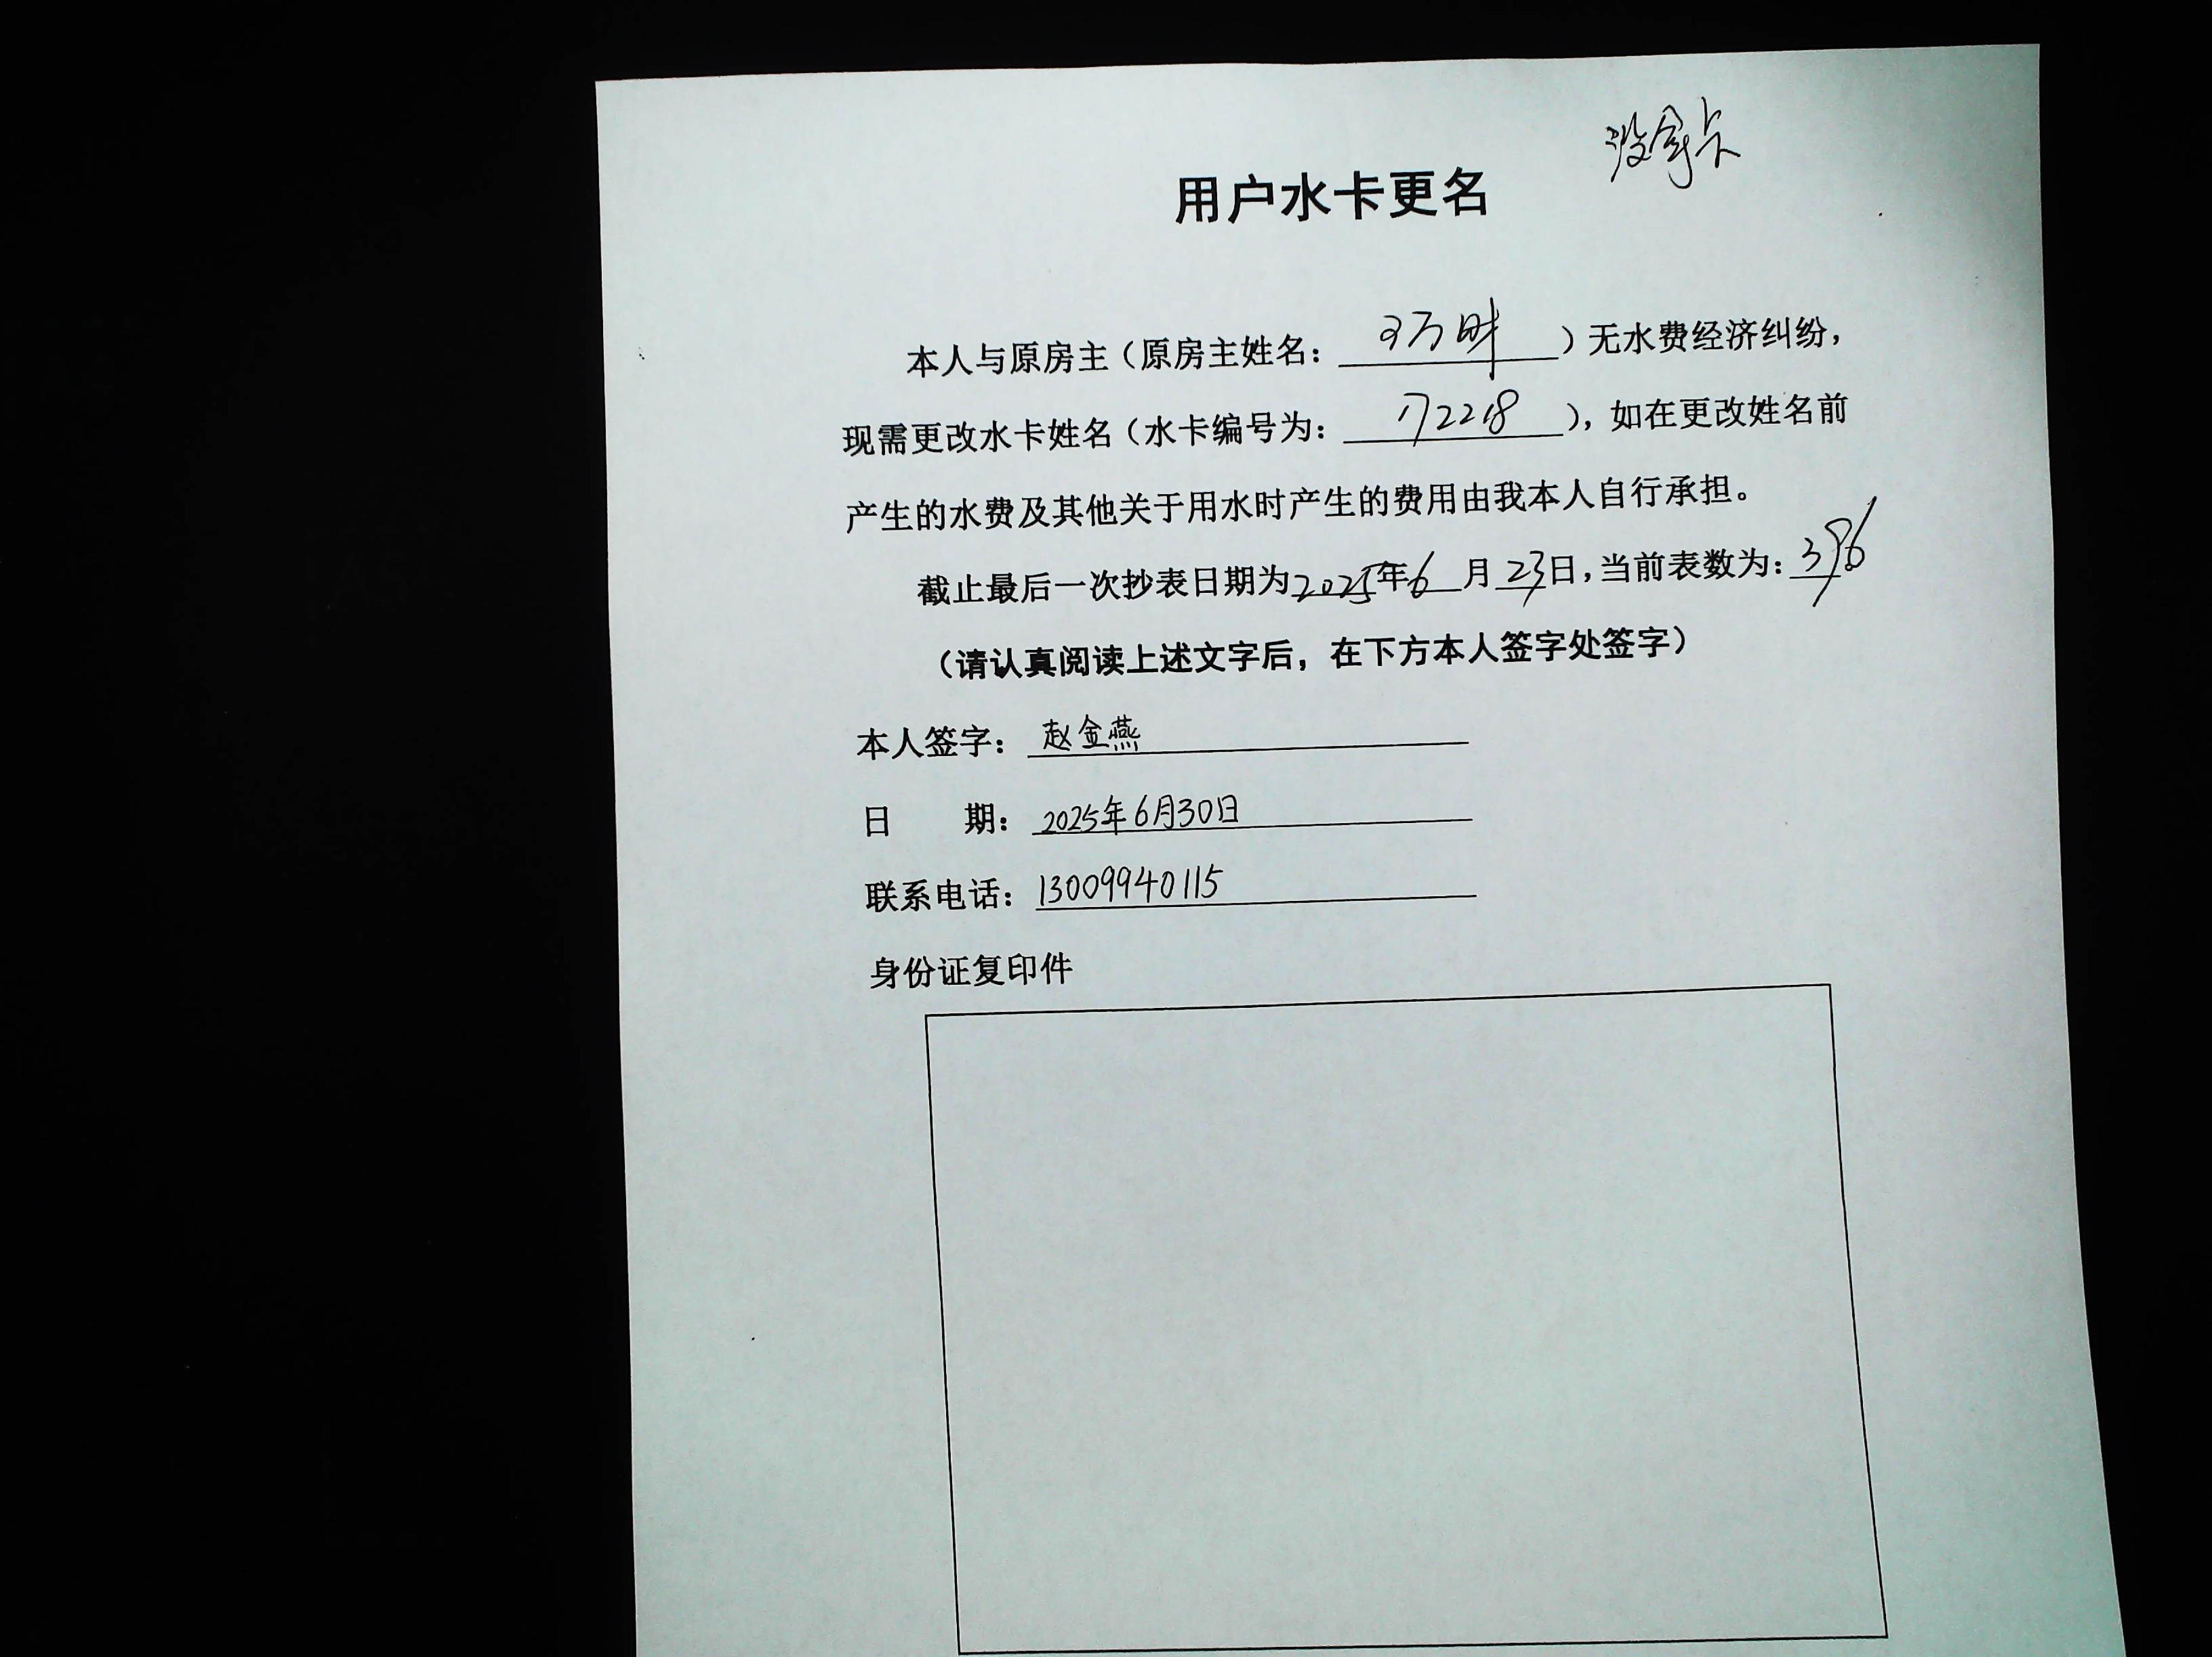 没拿卡
用户水卡更名
本人与原房主（原房主姓名：）无水费经济纠纷，
现需更改水卡姓名（水卡编号为：172218），如在更改姓名前
产生的水费及其他关于用水时产生的费用由我本人自行承担。
截止最后一次抄表日期为2025年6月23日，当前表数为：396
（请认真阅读上述文字后，在下方本人签字处签字）
本人签字：赵金燕
日 期：2025年6月30日
联系电话：13009940115
身份证复印件